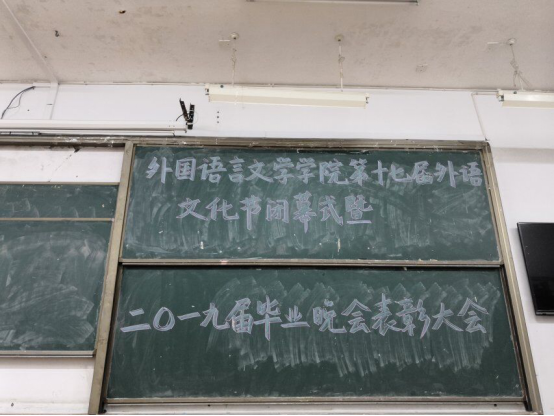 外国语言文学学院第十七届外语
文化节闭幕式暨
二〇一九届毕业晚会表彰大会